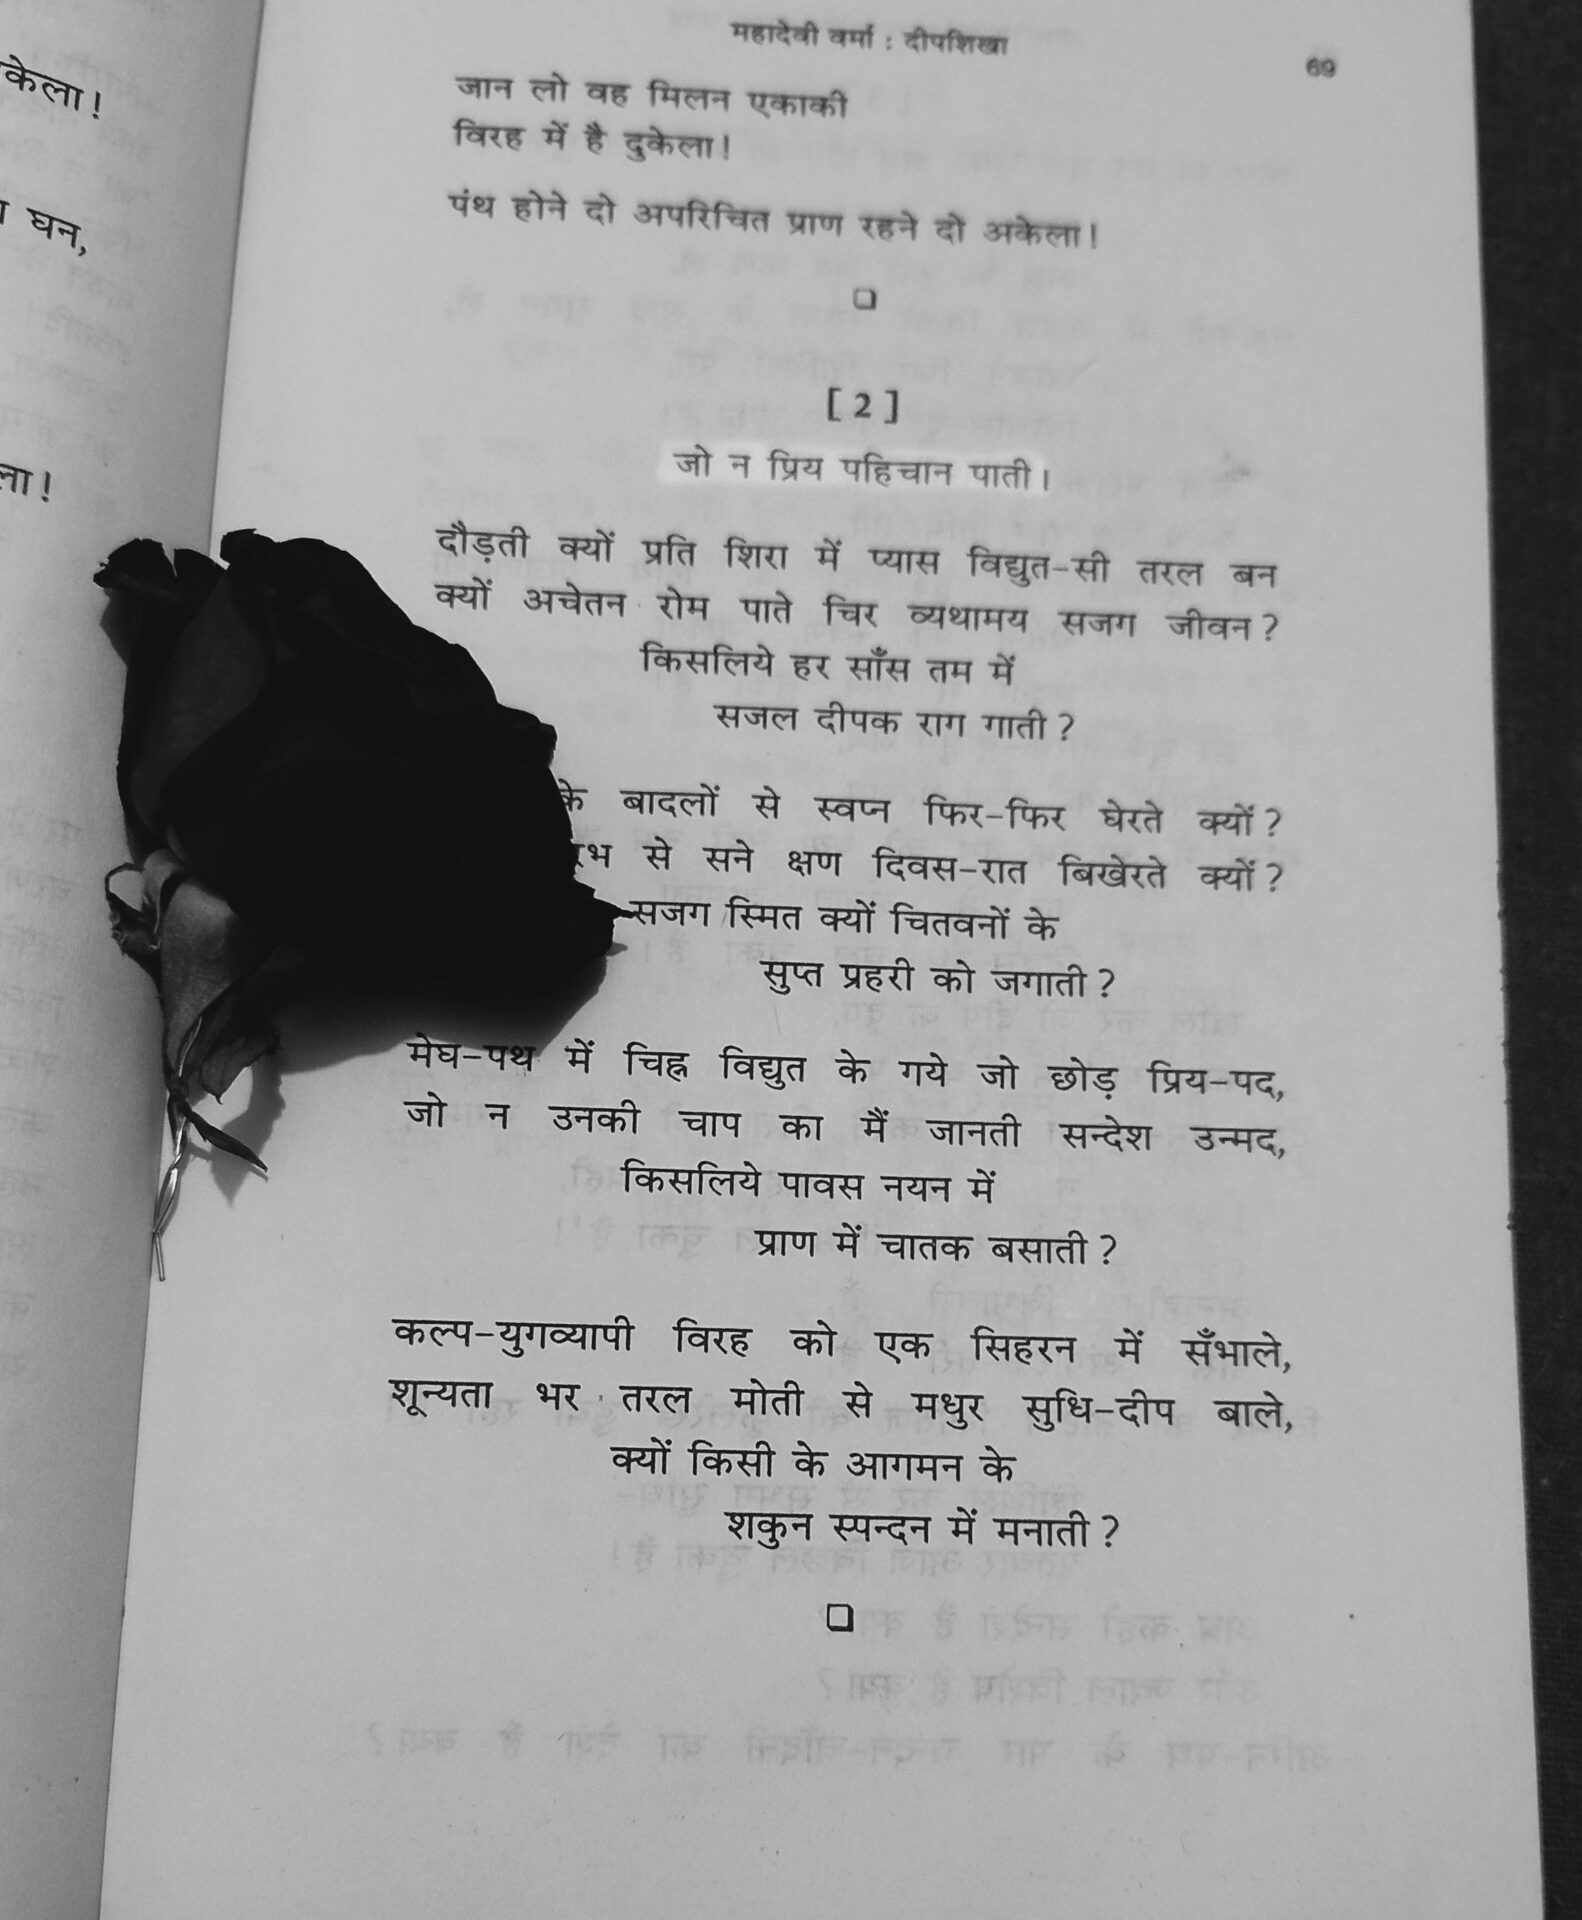 केला!
घन,
ला!
महादेवी वर्मा : दीपशिखा
69
जान लो वह मिलन एकाकी
विरह में है दुकेला!
पंथ होने दो अपरिचित प्राण रहने दो अकेला!
[ 2 ]
जो न प्रिय पहिचान पाती।
दौड़ती क्यों प्रति शिरा में प्यास विद्युत-सी तरल बन
क्यों अचेतन रोम पाते चिर व्यथामय सजग जीवन?
किसलिये हर साँस तम में
सजल दीपक राग गाती?
के बादलों से स्वप्न फिर-फिर घेरते क्यों?
रभ से सने क्षण दिवस-रात बिखेरते क्यों?
सजग स्मित क्यों चितवनों के
सुप्त प्रहरी को जगाती?
मेघ-पथ में चिह्न विद्युत के गये जो छोड़ प्रिय-पद,
जो न उनकी चाप का मैं जानती सन्देश उन्मद,
किसलिये पावस नयन में
प्राण में चातक बसाती?
कल्प-युगव्यापी विरह को एक सिहरन में सँभाले,
शून्यता भर तरल मोती से मधुर सुधि-दीप बाले,
क्यों किसी के आगमन के
शकुन स्पन्दन में मनाती?